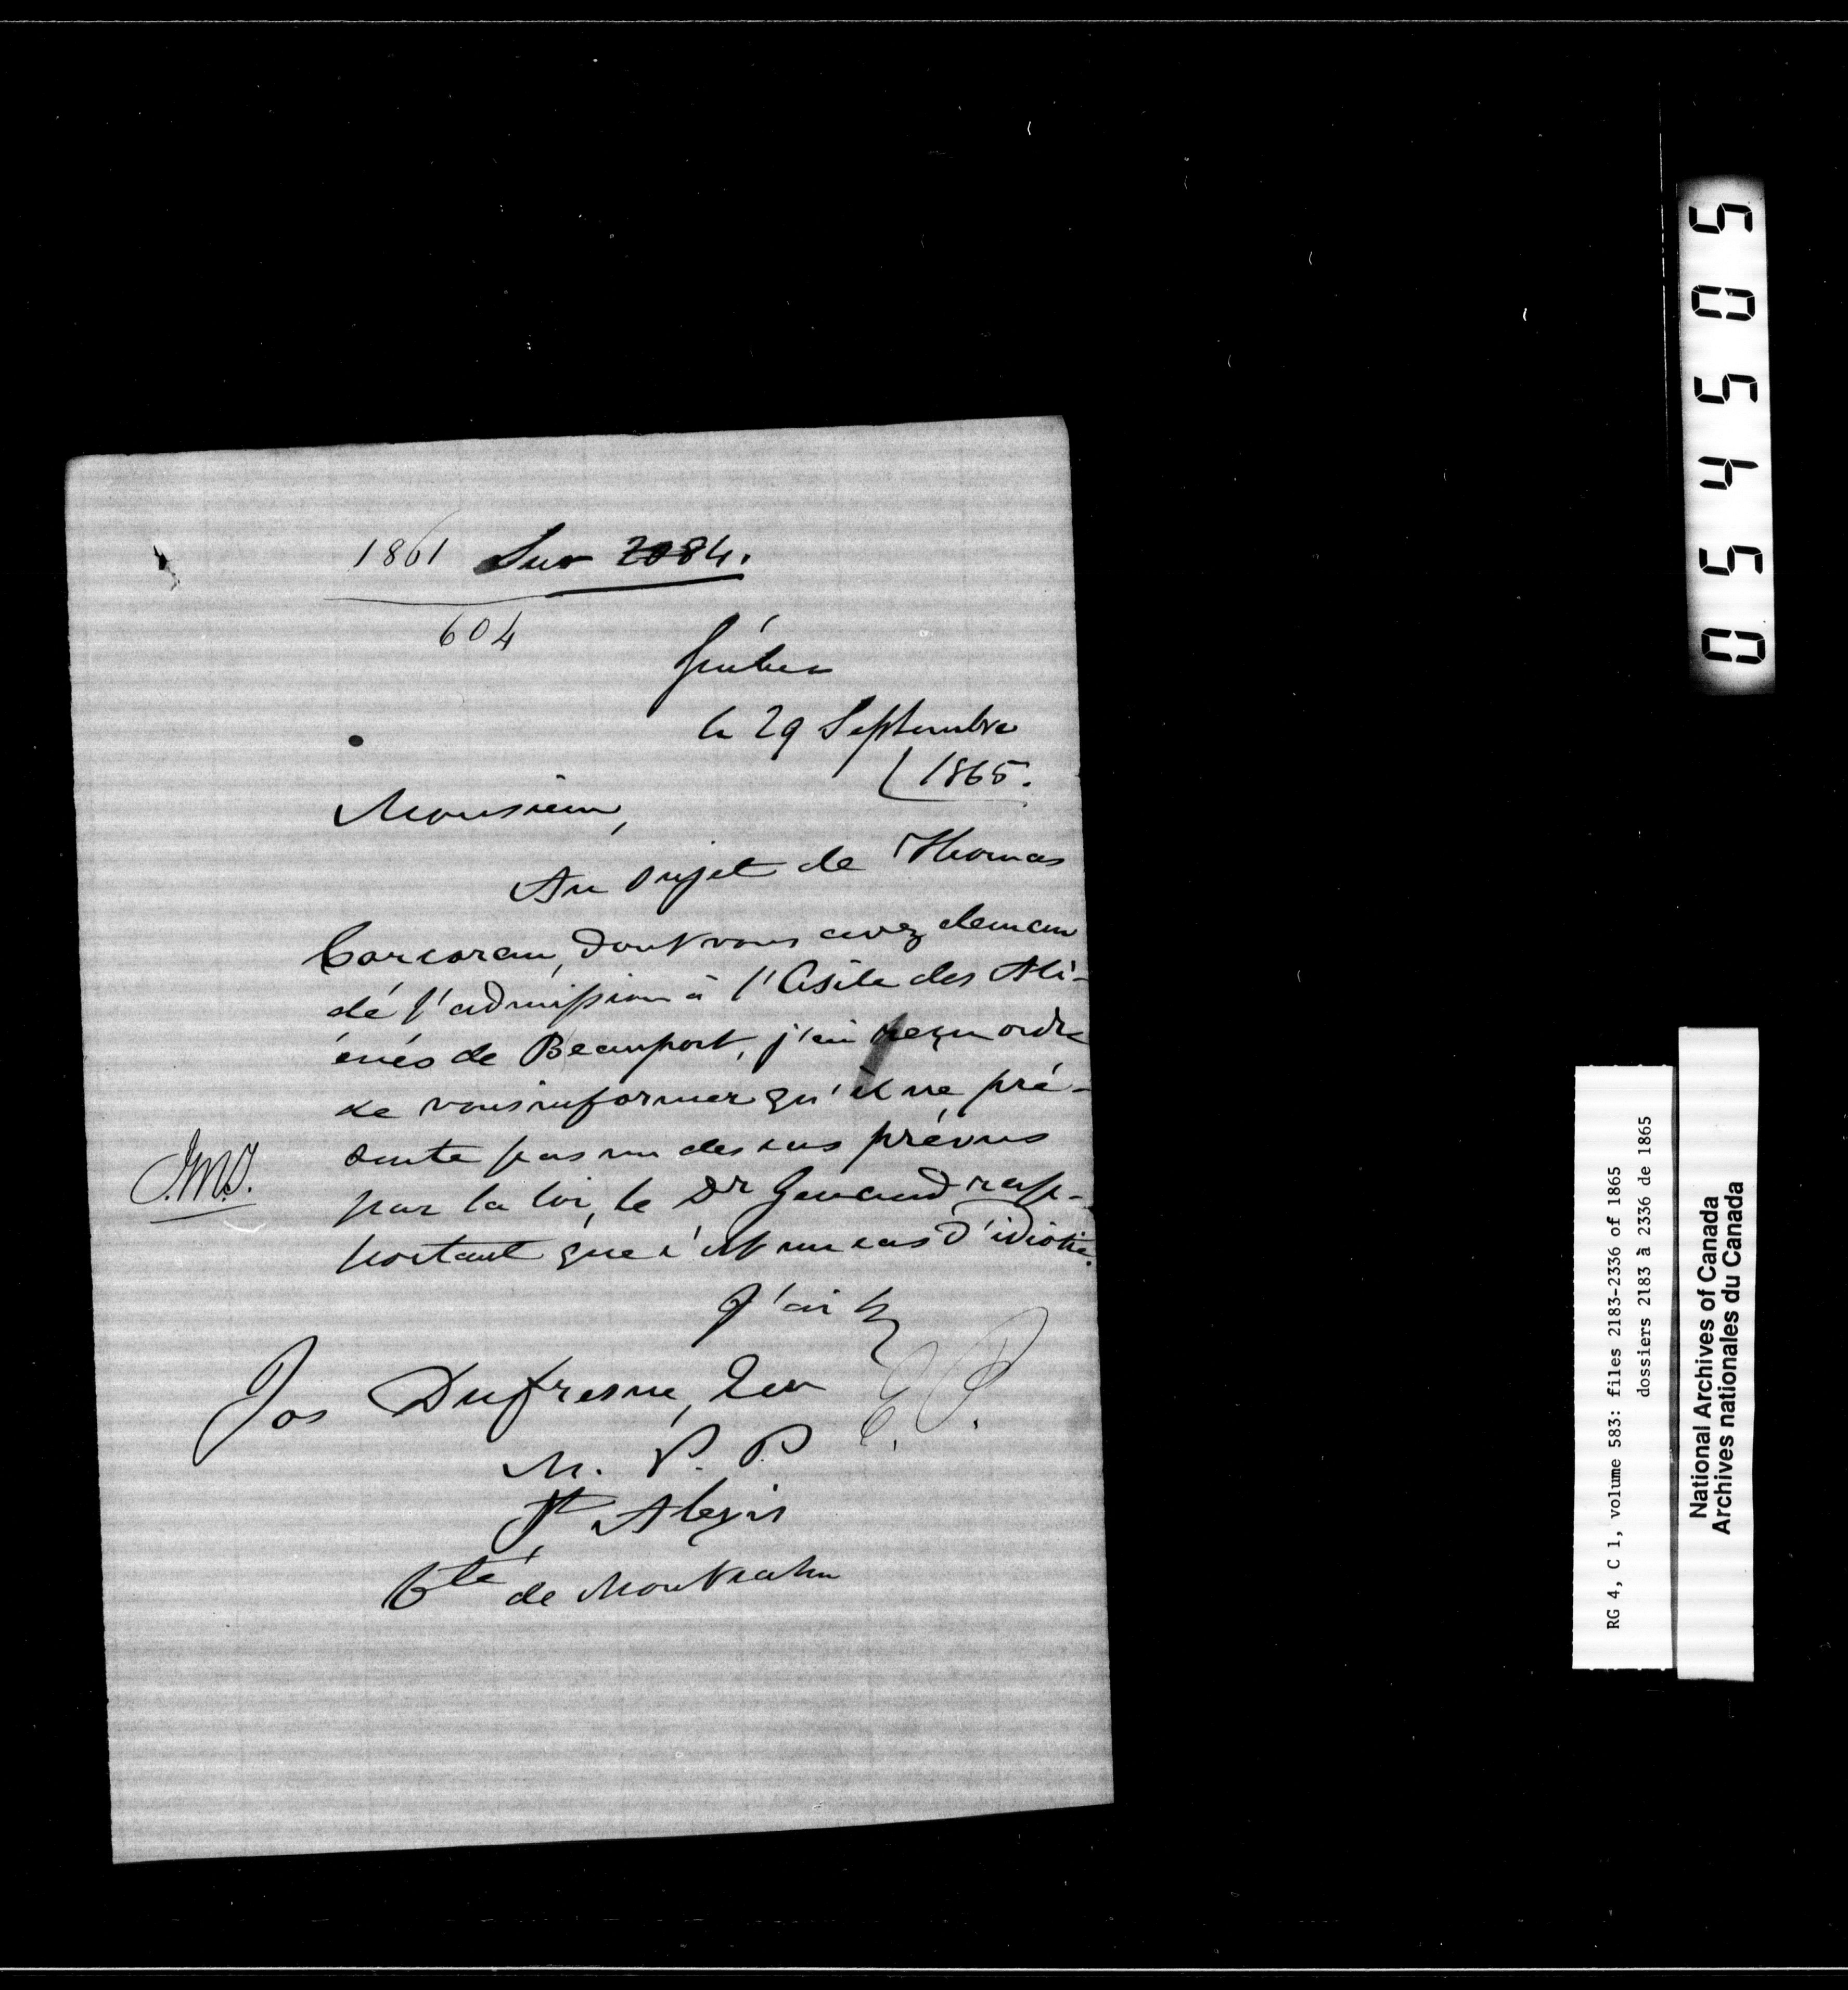 1861 Sur 2084.
604
Québec
le 29 Septembre
1865.
Monsieur,
Au sujet de Thomas
Corcoran, dont vous avez deman
dé l'admission à l'Asile des Ali-
énés de Beauport, j'ai reçu ordre
de vous informer qu'il ne pré-
sente pas un des cas prévus
J.M.J.
par la loi, le Dr rap-
portant que c'est un cas d'idiotie.
J'ai &
Jos Dufresne, Ecr
E. P.
M. P. P.
St Alexis
Cté de Montcalm
054505
RG 4, C 1, volume 583: files 2183-2336 of 1865
dossiers 2183 à 2336 de 1865
National Archives of Canada
Archives nationales du Canada